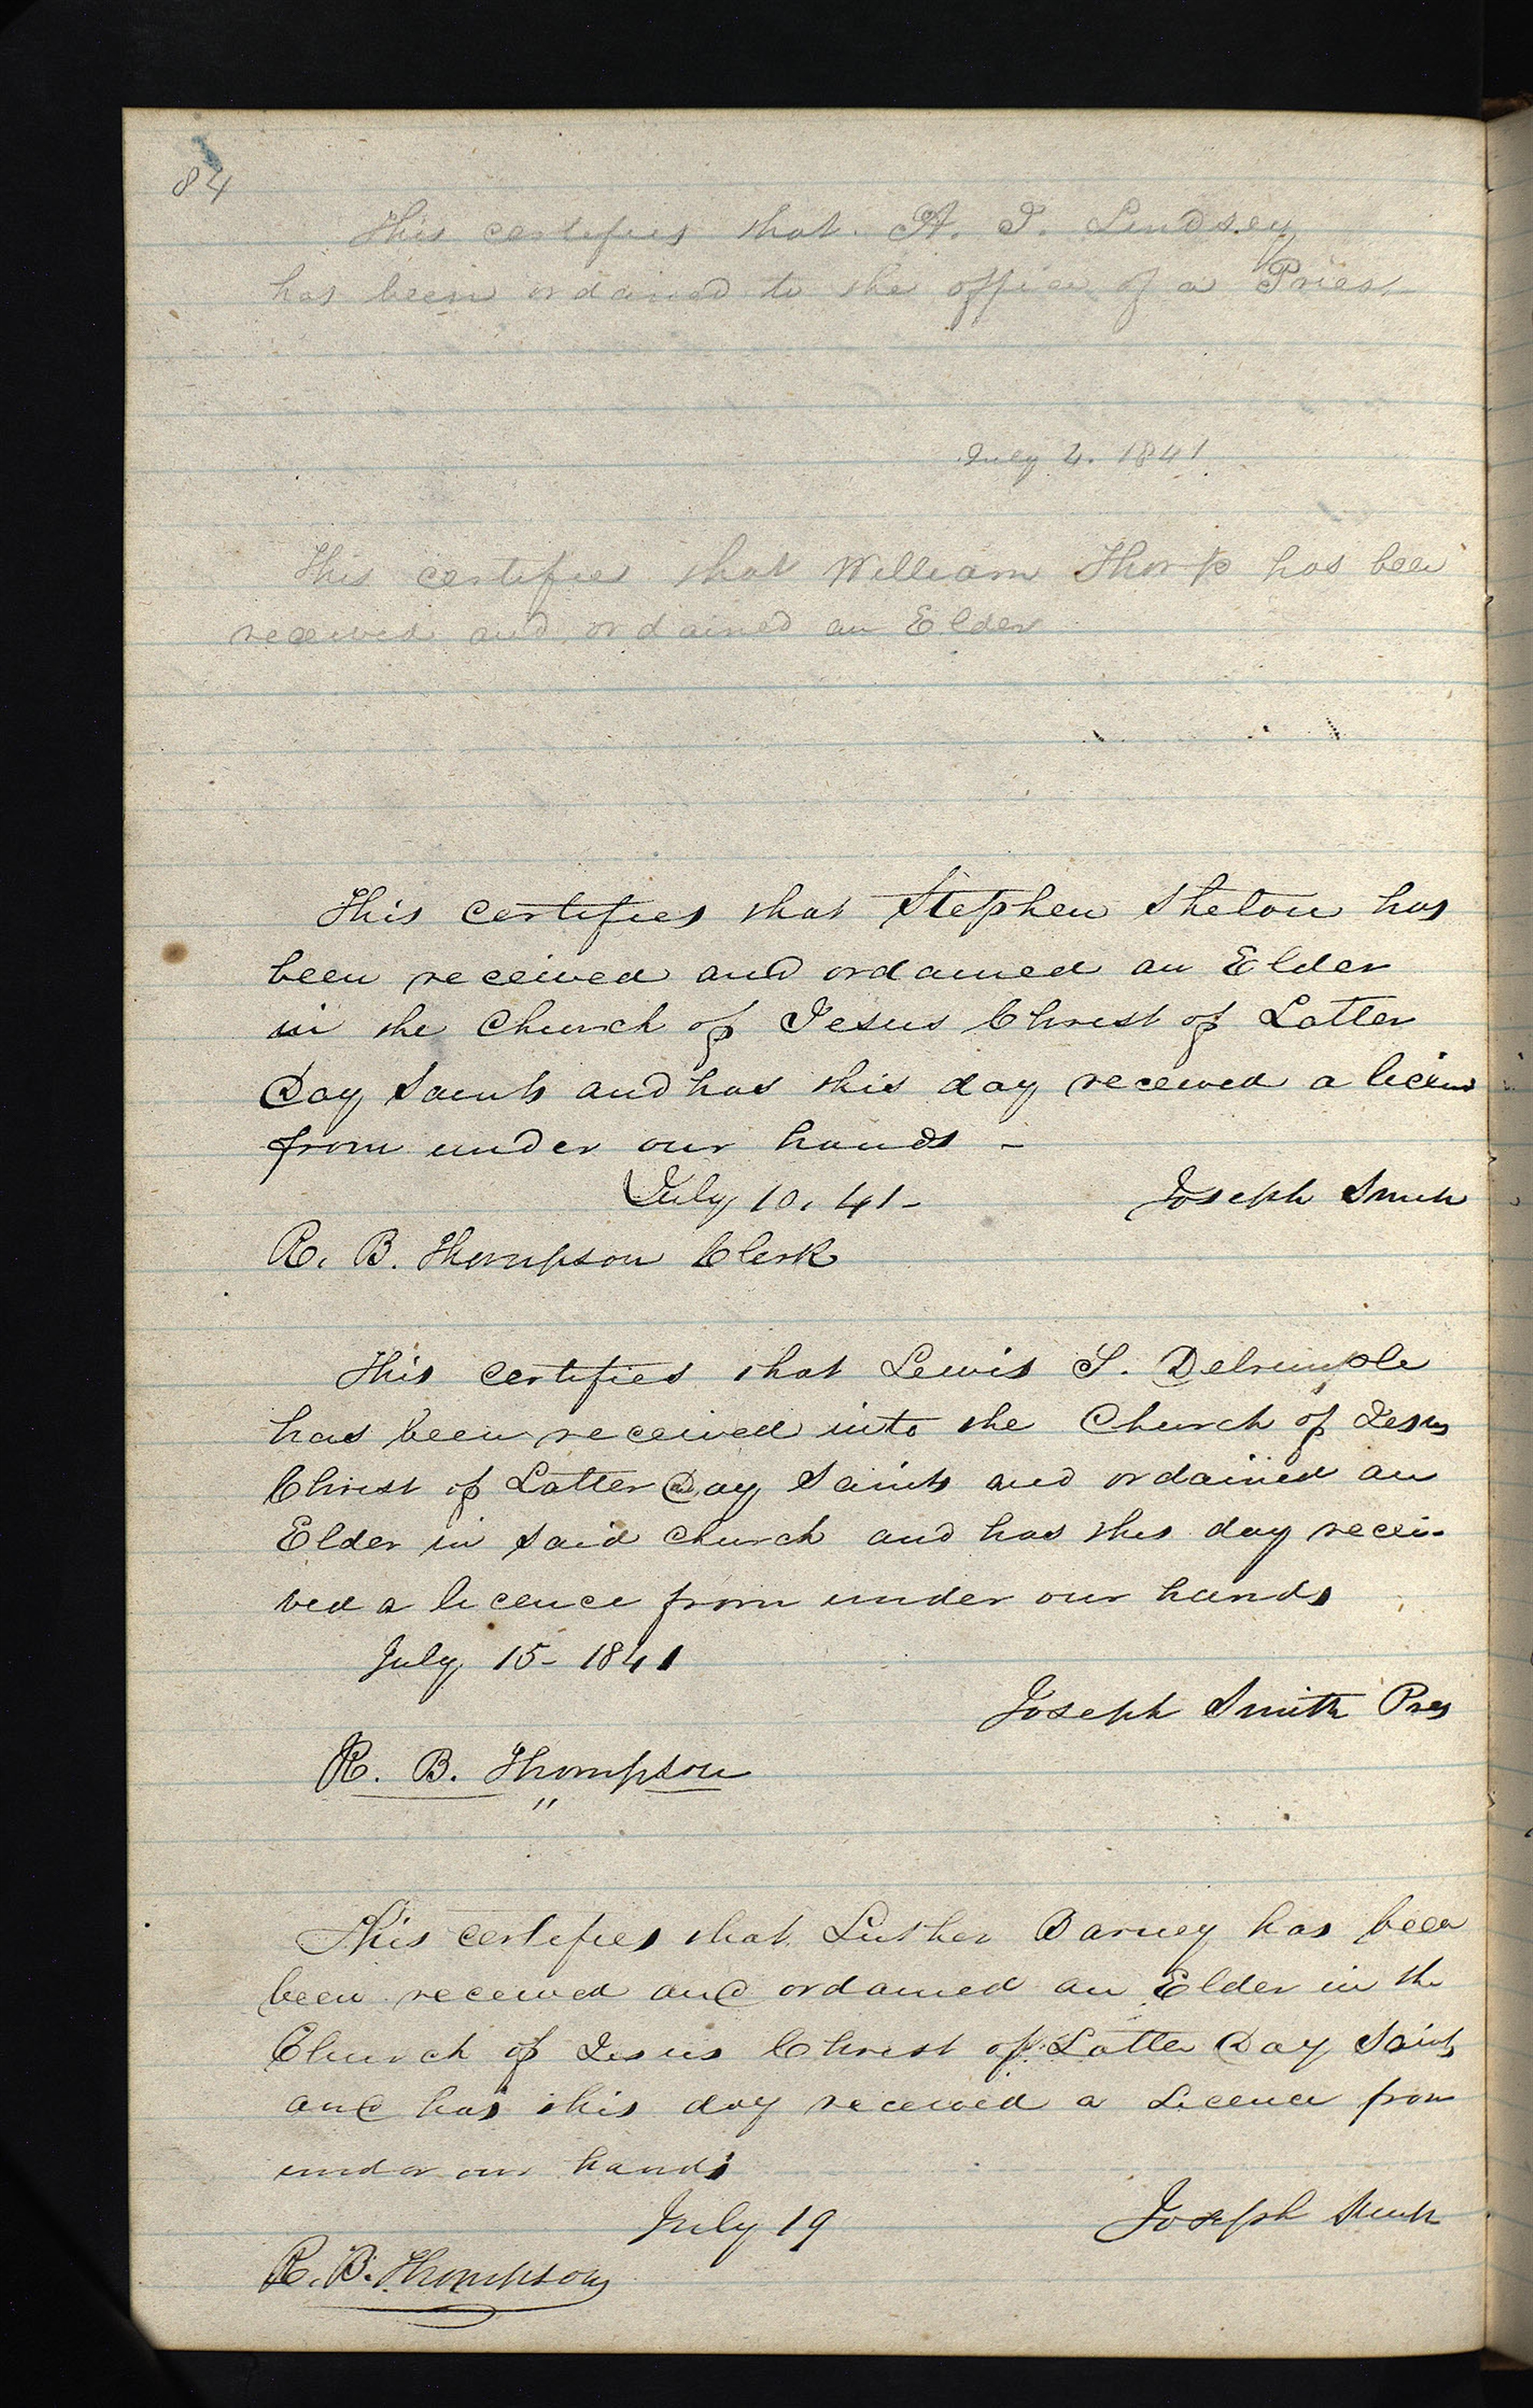 84
This certifies that A. J. Lindsey
has been ordained to the office of a Priest
July 4. 1841
This certifies that William Thorp has been
received and ordained an Elder
This certifies that Stephen Shelton has
been received and ordained an Elder
in the Church of Jesus Christ of Latter
Day Saints and has this day received a licens
from under our hands -
July 10, 41- Joseph Smith
R. B. Thompson Clerk
This certifies that Lewis S. Delrumple
has been received into the Church of Jesus
Christ of Latter Day Saints and ordained an
Elder in said church and has this day recei-
ved a licence from under our hands
July 15- 1841
Joseph Smith Pres
R. B. Thompson
"
This certifies that Luther Barney has been
been received and ordained an Elder in the
Church of Jesus Christ of Latter Day Saints
and has this day received a Licence from
under our hands
July 19 Joseph Smith
R. B. Thompson